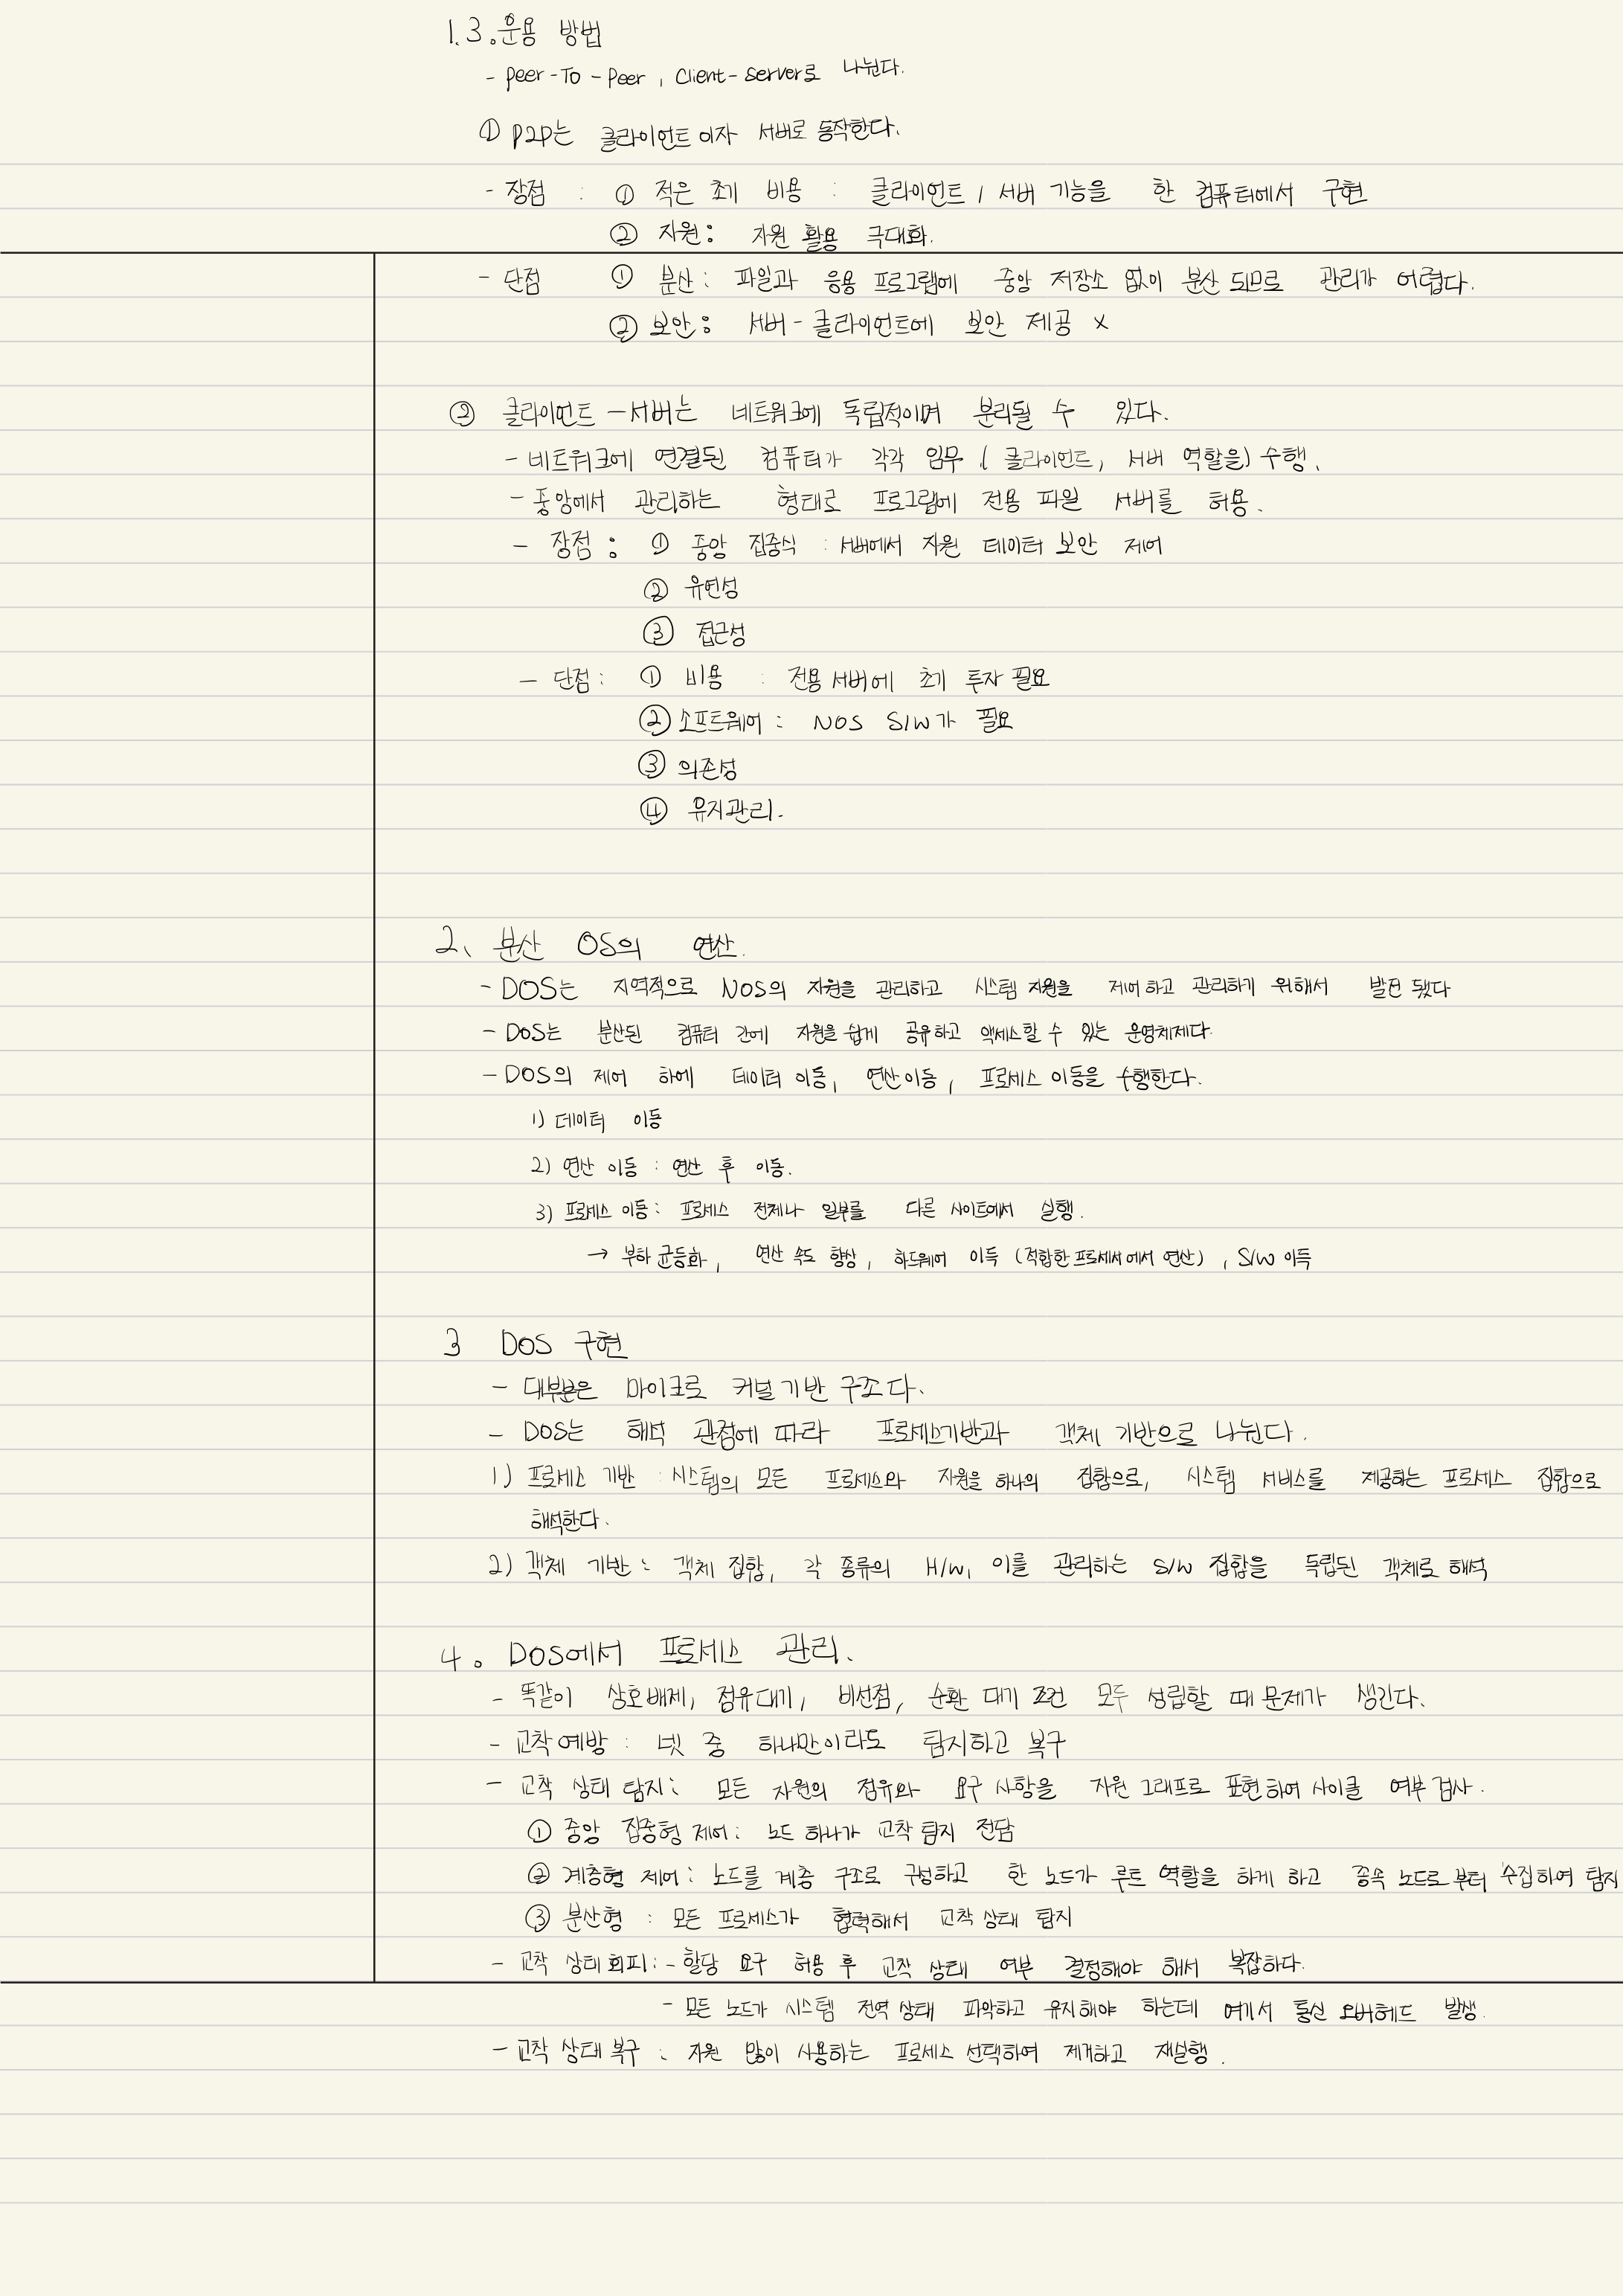 1.3. 운용 방법
- peer-To-Peer, Client-server로 나뉜다.
① P2P는 클라이언트이자 서버로 동작한다.
- 장점 : ① 적은 초기 비용 : 클라이언트 / 서버 기능을 한 컴퓨터에서 구현
② 자원 : 자원 활용 극대화.
- 단점 ① 분산 : 파일과 응용 프로그램에 중앙 저장소 없이 분산 되므로 관리가 어렵다.
② 보안 : 서버-클라이언트에 보안 제공 x
② 클라이언트 - 서버는 네트워크에 독립적이며 분리될 수 있다.
- 네트워크에 연결된 컴퓨터가 각각 임무 (클라이언트, 서버 역할을) 수행.
- 중앙에서 관리하는 형태로 프로그램에 전용 파일 서버를 허용.
- 장점 : ① 중앙 집중식 : 서버에서 자원 데이터 보안 제어
② 유연성
③ 접근성
- 단점 : ① 비용 : 전용 서버에 초기 투자 필요
② 소프트웨어 : NOS S/W가 필요
③ 의존성
④ 유지관리.
2. 분산 OS의 연산.
- DOS는 지역적으로 NOS의 자원을 관리하고 시스템 자원을 제어하고 관리하기 위해서 발전 됐다
- DOS는 분산된 컴퓨터 간에 자원을 쉽게 공유하고 액세스할 수 있는 운영체제다.
- DOS의 제어 하에 데이터 이동, 연산 이동, 프로세스 이동을 수행한다.
1) 데이터 이동
2) 연산 이동 : 연산 후 이동.
3) 프로세스 이동 : 프로세스 전체나 일부를 다른 사이트에서 실행.
→ 부하 균등화, 연산 속도 향상, 하드웨어 이득 (적합한 프로세서에서 연산), S/W 이득
3 DOS 구현
- 대부분은 마이크로 커널 기반 구조다.
- DOS는 해석 관점에 따라 프로세스기반과 객체 기반으로 나뉜다.
1) 프로세스 기반 : 시스템의 모든 프로세스와 자원을 하나의 집합으로, 시스템 서비스를 제공하는 프로세스 집합으로
해석한다.
2) 객체 기반 : 객체 집합, 각 종류의 H/W, 이를 관리하는 S/W 집합을 독립된 객체로 해석
4. DOS에서 프로세스 관리.
- 똑같이 상호배제, 점유대기, 비선점, 순환 대기 조건 모두 성립할 때 문제가 생긴다.
- 교착 예방 : 넷 중 하나만이라도 탐지하고 복구
- 교착 상태 탐지 : 모든 자원의 점유와 요구 사항을 자원 그래프로 표현하여 사이클 여부 검사.
① 중앙 집중형 제어 : 노드 하나가 교착 탐지 전담
② 계층형 제어 : 노드를 계층 구조로 구성하고 한 노드가 루트 역할을 하게 하고 종속 노드로 부터 수집하여 탐지
③ 분산형 : 모든 프로세스가 협력해서 교착 상태 탐지
- 교착 상태 회피 : - 할당 요구 허용 후 교착 상태 여부 결정해야 해서 복잡하다.
- 모든 노드가 시스템 전역 상태 파악하고 유지해야 하는데 여기서 통신 오버헤드 발생.
- 교착 상태 복구 : 자원 많이 사용하는 프로세스 선택하여 제거하고 재실행.